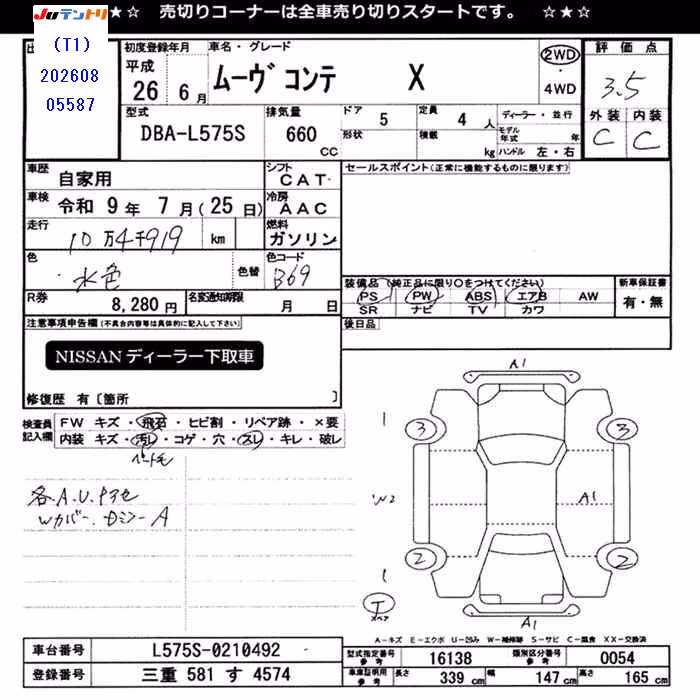 JUテントリ ★☆ 売切りコーナーは全車売り切りスタートです。 ☆★☆
(T1)
202608
05587
初度登録年月
平成
26年 6月
車名・グレード
ムーヴ コンテ X
2WD
・
4WD
評価点
3.5
外装 内装
C C
型式
DBA-L575S
排気量
660 CC
ドア 5
形状
定員 4人
積載 kg
ディーラー・並行
モデル年式 年
ハンドル 左・右
車歴 自家用
シフト CAT
車検 令和 9年 7月(25日)
冷房 AAC
走行 10万4千919 km
燃料 ガソリン
色 水色
色替
色コード B69
R券 8,280円
名変通知期限 月 日
セールスポイント(正常に機能するものに限ります)
装備品(純正品に限り○をつけてください)
PS PW ABS エアB AW
SR ナビ TV カワ
新車保証書
有・無
後日品
注意事項申告欄(不具合内容等は具体的に記入して下さい)
NISSANディーラー下取車
修復歴 有〔箇所 〕
検査員記入欄
FW キズ・飛石・ヒビ割・リペア跡・×要
内装 キズ・汚レ・コゲ・穴・スレ・キレ・破レ
各A.U.Pアセ
Wカバー、DミラーA
A1
1
3 3
W2
A1
2 2
1
T
スペア
A1
A-キズ E-エクボ U-凹み W-補修跡 S-サビ C-腐食 XX-交換済
車台番号 L575S-0210492
登録番号 三重 581 す 4574
型式指定番号 参考 16138
類別区分番号 参考 0054
車庫証明用 参考 長さ 339 cm 幅 147 cm 高さ 165 cm